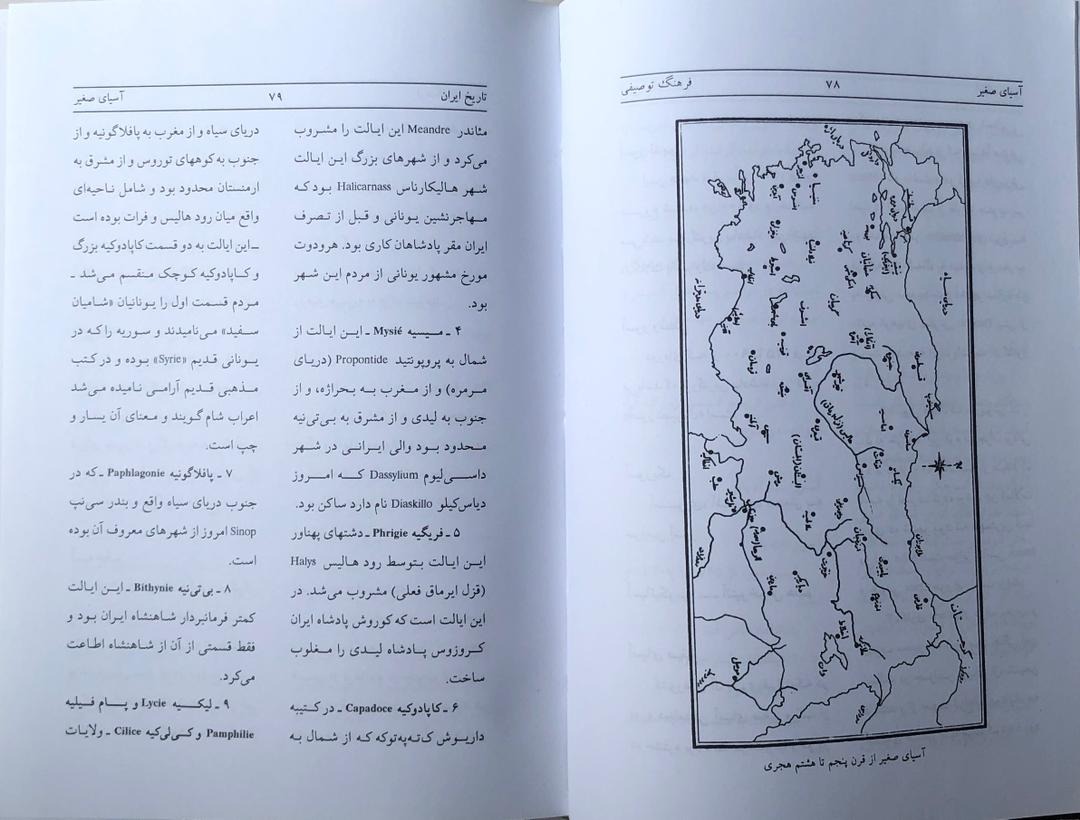 آسیای صغیر ۷۸ فرهنگ توصیفی
دریای سیاه
قسطنطنیه
سامسون
سینوب
گرجستان
قونیه
حلب
موصل
آسیای صغیر از قرن پنجم تا هشتم هجری
تاریخ ایران ۷۹ آسیای صغیر
مئاندر Meandre این ایالت را مشروب
می‌کرد و از شهرهای بزرگ این ایالت
شهر هالیکارناس Halicarnass بود که
مهاجرنشین یونانی و قبل از تصرف
ایران مقر پادشاهان کاری بود. هرودوت
مورخ مشهور یونانی از مردم این شهر
بود.
۴ ـ میسیه Mysié ـ این ایالت از
شمال به پروپونتید Propontide (دریای
مرمره) و از مغرب به بحراژه، و از
جنوب به لیدی و از مشرق به بی‌تی‌نیه
محدود بود والی ایرانی در شهر
داسی‌لیوم Dassylium که امروز
دیاس‌کیلو Diaskillo نام دارد ساکن بود.
۵ ـ فریگیه Phrigie ـ دشتهای پهناور
این ایالت بتوسط رود هالیس Halys
(قزل ایرماق فعلی) مشروب می‌شد. در
این ایالت است که کوروش پادشاه ایران
کروزوس پادشاه لیدی را مغلوب
ساخت.
۶ ـ کاپادوکیه Capadoce ـ در کتیبه
داریوش ک‌ته‌په‌توکه که از شمال به
دریای سیاه و از مغرب به پافلاگونیه و از
جنوب به کوههای توروس و از مشرق به
ارمنستان محدود بود و شامل ناحیه‌ای
واقع میان رود هالیس و فرات بوده است
ـ این ایالت به دو قسمت کاپادوکیه بزرگ
و کاپادوکیه کوچک منقسم می‌شد ـ
مردم قسمت اول را یونانیان «شامیان
سفید» می‌نامیدند و سوریه را که در
یونانی قدیم «Syrie» بوده و در کتب
مذهبی قدیم آرامی نامیده می‌شد
اعراب شام گویند و معنای آن یسار و
چپ است.
۷ ـ پافلاگونیه Paphlagonie ـ که در
جنوب دریای سیاه واقع و بندر سی‌نپ
Sinop امروز از شهرهای معروف آن بوده
است.
۸ ـ بی‌تی‌نیه Bithynie ـ این ایالت
کمتر فرمانبردار شاهنشاه ایران بود و
فقط قسمتی از آن از شاهنشاه اطاعت
می‌کرد.
۹ ـ لیکیه Lycie و پام فیلیه
Pamphilie و کی‌لی‌کیه Cilice ـ ولایات